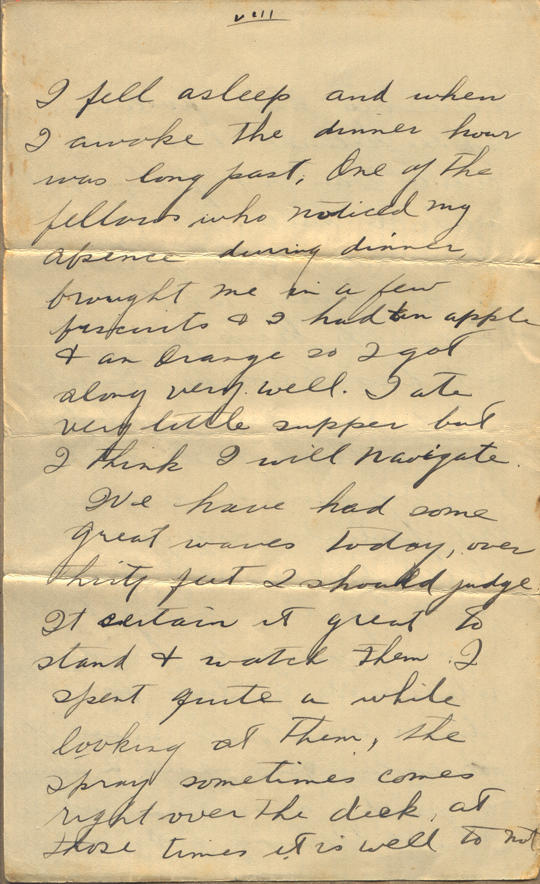 VIII
I fell asleep and when
I awoke the dinner hour
was long past, One of the
fellows who noticed my
absence during dinner,
brought me in a few
biscuits & I had an apple
& an Orange so I got
along very well. I ate
very little supper but
I think I will navigate.
We have had some
great waves today, over
thirty feet I should judge.
It certain it great to
stand & watch them. I
spent quite a while
looking at them, the
spray sometimes comes
right over the deck, at
those times it is well to not